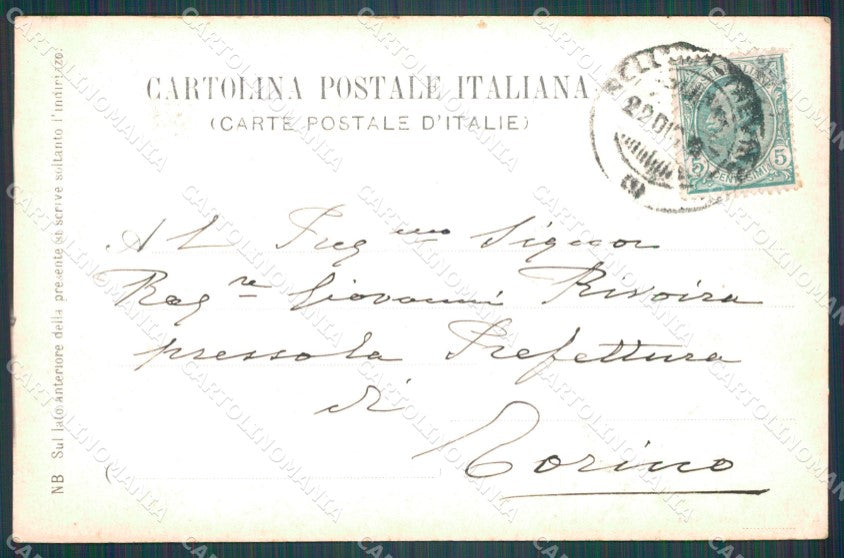 CARTOLINA POSTALE ITALIANA
(CARTE POSTALE D'ITALIE)
22 DIC
5 CENTESIMI 5
Al Preg.mo Signor
Rag.re Giovanni Rivoira
presso la Prefettura
di
Torino
NB Sul lato anteriore della presente si scrive soltanto l'indirizzo.
CARTOLINOMANIA